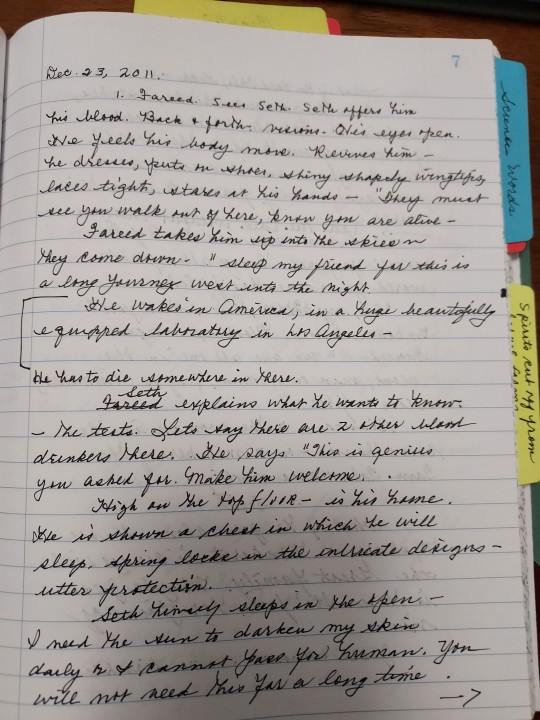 7
Dec. 23, 2011.
1. Fareed. Sees Seth. Seth offers him
his blood. Back & forth. visions. His eyes open.
He feels his body move. Revives him —
he dresses, puts on shoes, shiny shapely wingtips,
laces tight, stares at his hands — "They must
see you walk out of here, know you are alive —
Fareed takes him up into the skies
they come down - "sleep my friend for this is
a long journey west into the night.
He wakes in America, in a huge beautifully
equipped laboratory in Los Angeles —
He has to die somewhere in there.
Seth
Fareed explains what he wants to know.
— the tests. Lets say there are 2 other blood
drinkers there. He says "This is genius
you asked for. Make him welcome.
High on the top floor — is his home.
He is shown a chest in which he will
sleep. Spring locks in the intricate designs —
utter protection.
Seth himself sleeps in the open —
I need the sun to darken my skin
daily or I cannot pass for human. You
will not need this for a long time.
—>
Science Words
Spirits cut off from